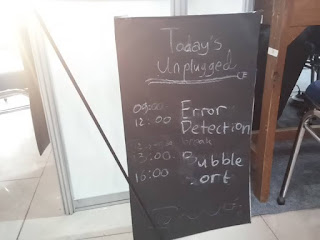 Today's
Unplugged
09:00 Error
12:00 Detection
break
13:00 Bubble
16:00 Sort